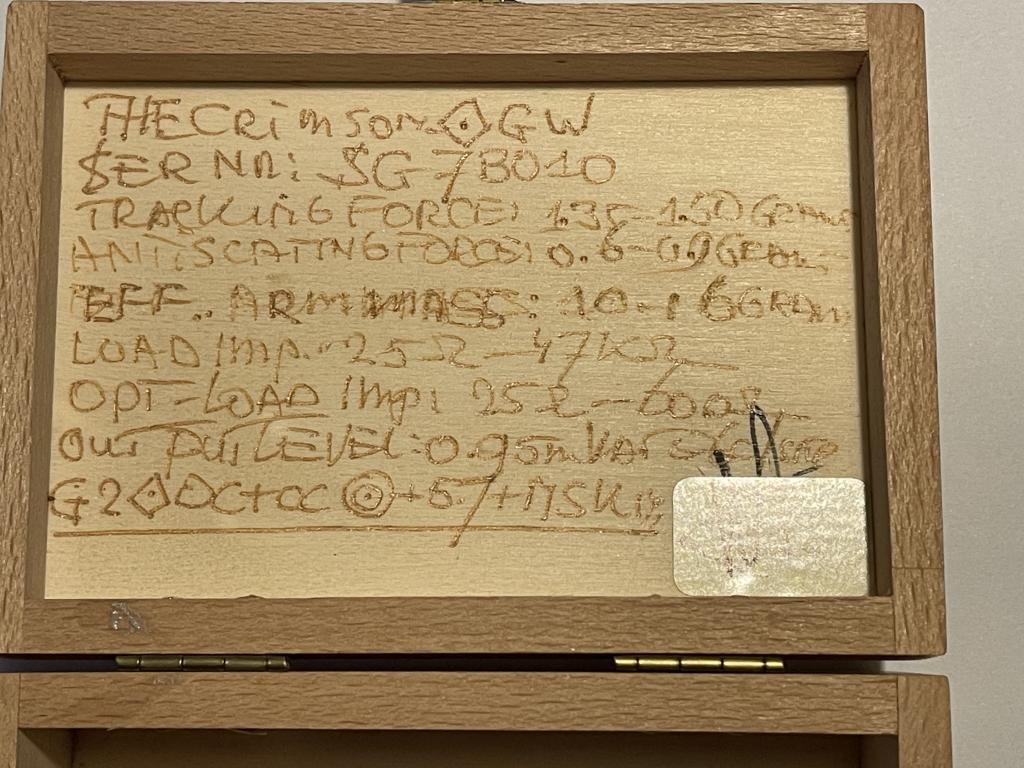 THE CRimson GW
SER NR: SG-7B010
TRACKiNG FORCE: 1.35-1.50 GRAM
ANTiSCATiNG FORCE: 0.6-0.9 GRAM
EFF. ARM MASS: 10-16 GRAM
LOAD Imp. 25Ω-47KΩ
OPT-LOAD Imp: 25Ω-600Ω
OUTPUT LEVEL: 0.95mV
G2 DC+CC +5.7+